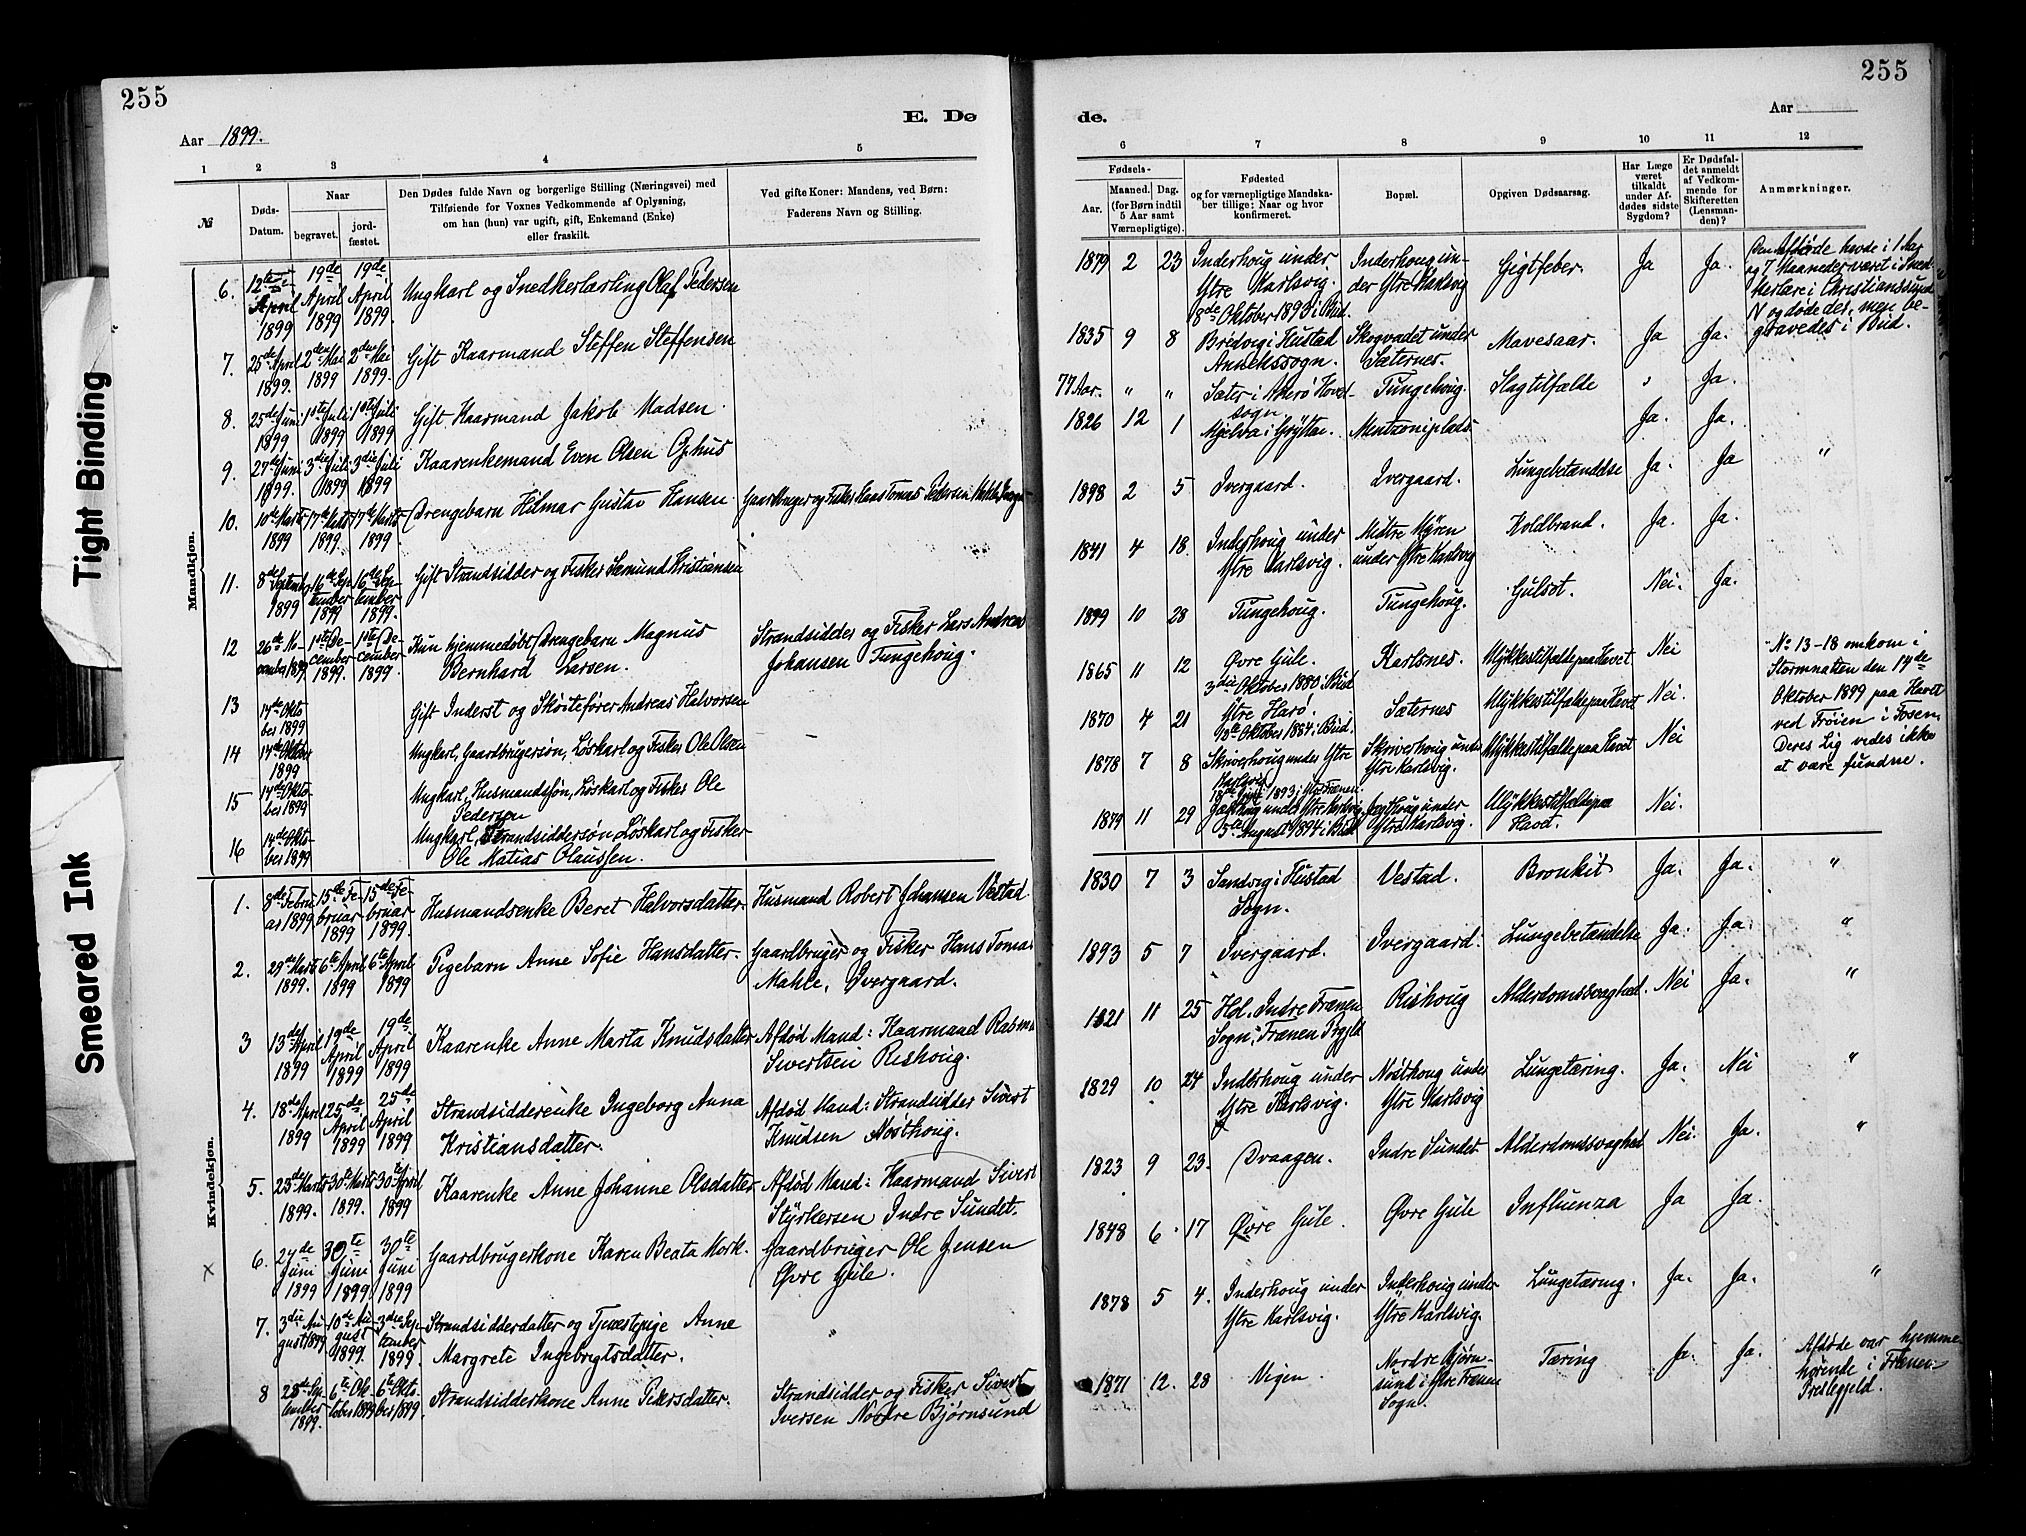 255
Aar 1899.
E. Dø
1
2
3
4
5
№
Døds-
Datum.
Naar
begravet.
jord-
fæstet.
Den Dødes fulde Navn og borgerlige Stilling (Næringsvei) med
Tilføiende for Voxnes Vedkommende af Oplysning,
om han (hun) var ugift, gift, Enkemand (Enke)
eller fraskilt.
Ved gifte Koner: Mandens, ved Børn:
Faderens Navn og Stilling.
Tight Binding
Smeared Ink
Mandkjøn.
6. 12te April 1899 19de April 1899 19de April 1899. Ungkarl og Snedkerlærling Olaf Pedersen
7. 25de April 1899. 2den Mai 1899 2den Mai 1899. Gift Kaarmand Steffen Steffensen
8. 25de Juni 1899 1ste Juli 1899 1ste Juli 1899 Gift Kaarmand Jakob Madsen.
9. 27de Juni 1899. 3die Juli 1899 3die Juli 1899 Kaarenkemand Even Olsen Ophus
10. 10de Marts 1899 17de Marts 1899. 17de Marts 1899. Drengebarn Hilmar Gustav Hansen. Gaardbruger og Fisker Hans Tomas Pedersen Mahle
11. 8de September 1899 16de September 1899 16de September 1899. Gift Strandsidder og Fisker Sæmund Kristiansen
12 26de November 1899. 1ste December 1899. 1ste December 1899. Kun hjemmedøbt Drengebarn Magnus
Bernhard Larsen.
Strandsidder og Fisker Lars Andreas
Johansen Tungehoug.
13 14de Oktober 1899 Gift Inderst og Skøitefører Andreas Halvorsen
14 14de Oktober 1899 Ungkarl, Gaardbrugersøn, Løskarl og Fisker Ole Olsen
15 14de Oktober 1899 Ungkarl, Husmandssøn, Løskarl og Fisker Ole
Pedersen
16 14de Oktober 1899 Ungkarl, Strandsiddersøn Løskarl og Fisker
Ole Matias Olaussen.
Kvindekjøn.
1. 8de Februar 1899 15de Februar 1899 15de Februar 1899. Husmandsenke Beret Halvorsdatter Husmand Robert Johansen Vestad.
2. 29de Marts 1899. 6te April 1899 6te April 1899 Pigebarn Anne Sofie Hansdatter. Gaardbruger og Fisker Hans Tomas
Mahle, Ivergaard.
3 13de April 1899 19de April 1899 19de April 1899 Kaarenke Anne Marta Knudsdatter Afdød Mand: Kaarmand Rasmus
Sivertsen Rishoug.
4. 18de April 1899 25de April 1899 25de April 1899 Strandsidderenke Ingeborg Anna
Kristiansdatter.
Afdød Mand: Strandsidder Sivert
Knudsen Nøsthoug.
5. 23de Marts 1899. 30te Marts 1899. 30te April 1899 Kaarenke Anne Johanne Olsdatter Afdød Mand: Kaarmand Sivert
Styrkersen Indre Sundet.
× 6. 24de Juni 1899 30te Juni 1899 30te Juni 1899 Gaardbrugerkone Karen Beata Mork. Gaardbruger Ole Jensen
Øvre Gule.
7. 3die August 1899 10de August 1899. 3die September 1899. Strandsidderdatter og Tjenestpige Anne
Margrete Ingebrigtsdatter.
"
8 28de September 1899. 6te Oktober 1899 6te Oktober 1899. Strandsidderkone Anne Pedersdatter. Strandsidder og Fisker Sivert
Iversen Nordre Bjørnsund
255
Aar
de.
6
7
8
9
10
11
12
Fødsels-
Aar.
Maaned. Dag.
(for Børn indtil
5 Aar samt
Værnepligtige).
Fødested
og for værnepligtige Mandska-
ber tillige: Naar og hvor
konfirmeret.
Bopæl.
Opgiven Dødsaarsag.
Har Læge
været
tilkaldt
under Af-
dødes sidste
Sygdom?
Er Dødsfal-
det anmeldt
af Vedkom-
mende for
Skifteretten
(Lensman-
den)?
Anmærkninger.
1879 2 23 Inderhoug under
Ytre Karlsvig.
8de Oktober 1893 i Bud.
Inderhoug un-
der Ytre Karlsvig
Gigtfeber. Ja Ja.
Den Afdøde havde i 1 Aar
og 7 Maaneder været i Sned-
kerlære i Christianssund
N og døde der, men be-
gravedes i Bud.
1835 9 8 Bredvig i Hustad
Annekssogn.
Skogvadet under
Sæternes.
Mavesaar. Ja Ja.
77 Aar. " " Sæter i Akerø Hoved-
sogn
Tungehoug. Slagtilfælde Ja.
1826 12 1 Mjelva i Grytten. Mentzoniplads Ja. Ja.
1898 2 5 Ivergaard. Ivergaard. Lungebetændelse Ja. Ja "
1841 4 18 Inderhoug under
Ytre Karlsvig.
Midtre Myren
under Ytre Karlsvig
Koldbrand. Ja. Ja.
1899 10 28 Tungehoug. Tungehoug. Gulsot. Nei. Ja.
1865 11 12 Øvre Gule.
3die Oktober 1880 i Bud
Karlsnes. Ulykkestilfælde paa Havet Nei
1870 4 21 Ytre Harø.
Oktober 1884 i Bud.
Sæternes Ulykkestilfælde paa Havet Nei.
1878 7 8 Skriverhoug under Ytre
Karlsvig
1893 i Ytre Frænen
Skriverhoug under
Ytre Karlsvig.
Ulykkestilfælde paa Havet Nei
1879 11 29 under Ytre Karlsvig
5te August 1894 i Bud
under
Ytre Karlsvig.
Ulykkestilfælde paa
Havet.
Nei.
No 13-18 omkom i
Stormnatten den 14de
Oktober 1899 paa Havet
ved Frøien i Fosen.
Deres Lig vides ikke
at være fundne.
1830 7 3 Sandvig i Hustad
Sogn.
Vestad. Bronkit Ja. Ja. "
1893 5 7 Ivergaard. Ivergaard. Lungebetændelse Ja. Ja. "
1821 11 25 Hol, Indre Frænen
Sogn, Frænen Prgjld
Rishoug Alderdomssvaghed. Nei Ja. "
1829 10 24 Inderhoug under
Ytre Karlsvig.
Nøsthoug under
Ytre Karlsvig
Lungetæring. Ja. Nei "
1823 9 23. Draagen. Indre Sundet Alderdomssvaghed Nei. Ja. "
1848 6 17 Øvre Gule. Øvre Gule Influenza Ja Ja.
1878 5 4. Inderhoug under
Ytre Karlsvig.
Inderhoug under
Ytre Karlsvig.
Lungetæring. Ja. Ja. "
1871 12. 28 Vigen. Nordre Bjørn-
sund i Ytre Frænen
Sogn.
Tæring Ja. Ja.
Afdøde var hjemme-
hørende i Frænen
Præstegjeld.